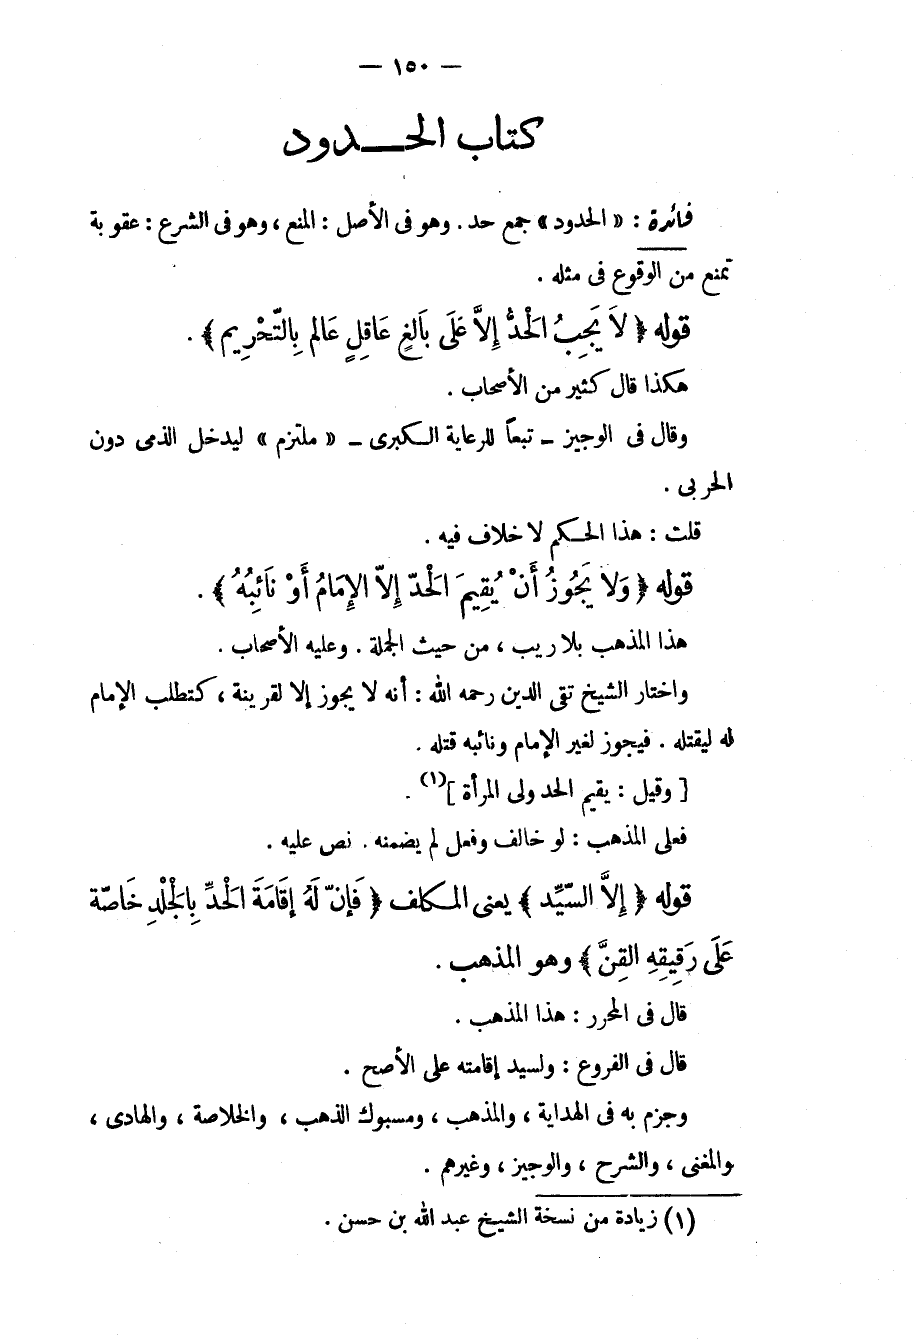 — ١٥٠ —
كتاب الحـــدود
فائدة : « الحدود » جمع حد . وهو فى الأصل : المنع ، وهو فى الشرع : عقوبة
تمنع من الوقوع فى مثله .
قوله ﴿ لاَ يَجِبُ الحَْدُّ إِلاَّ عَلَى بَالِغٍ عَاقِلٍ عَالم بِالتَّحْرِيم ﴾ .
هكذا قال كثير من الأصحاب .
وقال فى الوجيز ــ تبعاً للرعاية الكبرى ــ « ملتزم » ليدخل الذمى دون
الحربى .
قلت : هذا الحكم لا خلاف فيه .
قوله ﴿ وَلاَ يَجُوزُ أَنْ يُقِيمَ الَحْدّ إِلاّ الإِمَامُ أَوْ نَائِبُهُ ﴾ .
هذا المذهب بلا ريب ، من حيث الجملة . وعليه الأصحاب .
واختار الشيخ تقى الدين رحمه الله : أنه لا يجوز إلا لقرينة ، كتطلب الإمام
له ليقتله . فيجوز لغير الإمام ونائبه قتله .
[ وقيل : يقيم الحد ولى المرأة ](١) .
فعلى المذهب : لو خالف وفعل لم يضمنه . نص عليه .
قوله ﴿ إِلاَّ السّيِّد ﴾ يعنى المكلف ﴿ فَإِنّ لَهُ إِقَامَةَ الَحْدِّ بِالَجْلْدِ خَاصّة
عَلَى رَقِيقِهِ القِنَّ ﴾ وهو المذهب .
قال فى المحرر : هذا المذهب .
قال فى الفروع : ولسيد إقامته على الأصح .
وجزم به فى الهداية ، والمذهب ، ومسبوك الذهب ، والخلاصة ، والهادى ،
والمغنى ، والشرح ، والوجيز ، وغيرهم .
(١) زيادة من نسخة الشيخ عبد الله بن حسن .